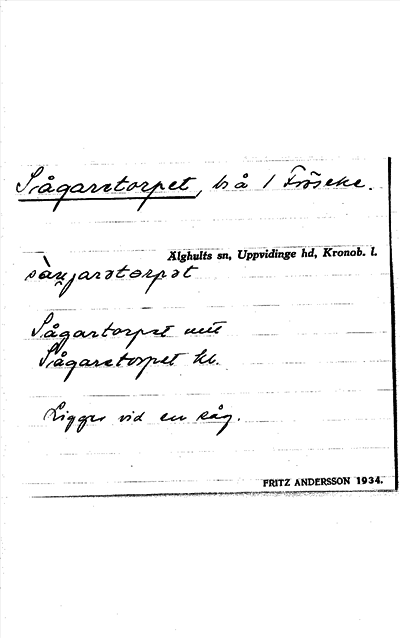 Sågaretorpet, bå 1 Fröseke.
Älghults sn, Uppvidinge hd, Kronob. l.
Sågartorpet
Sågaretorpet
Ligger vid en såg.
FRITZ ANDERSSON 1934.